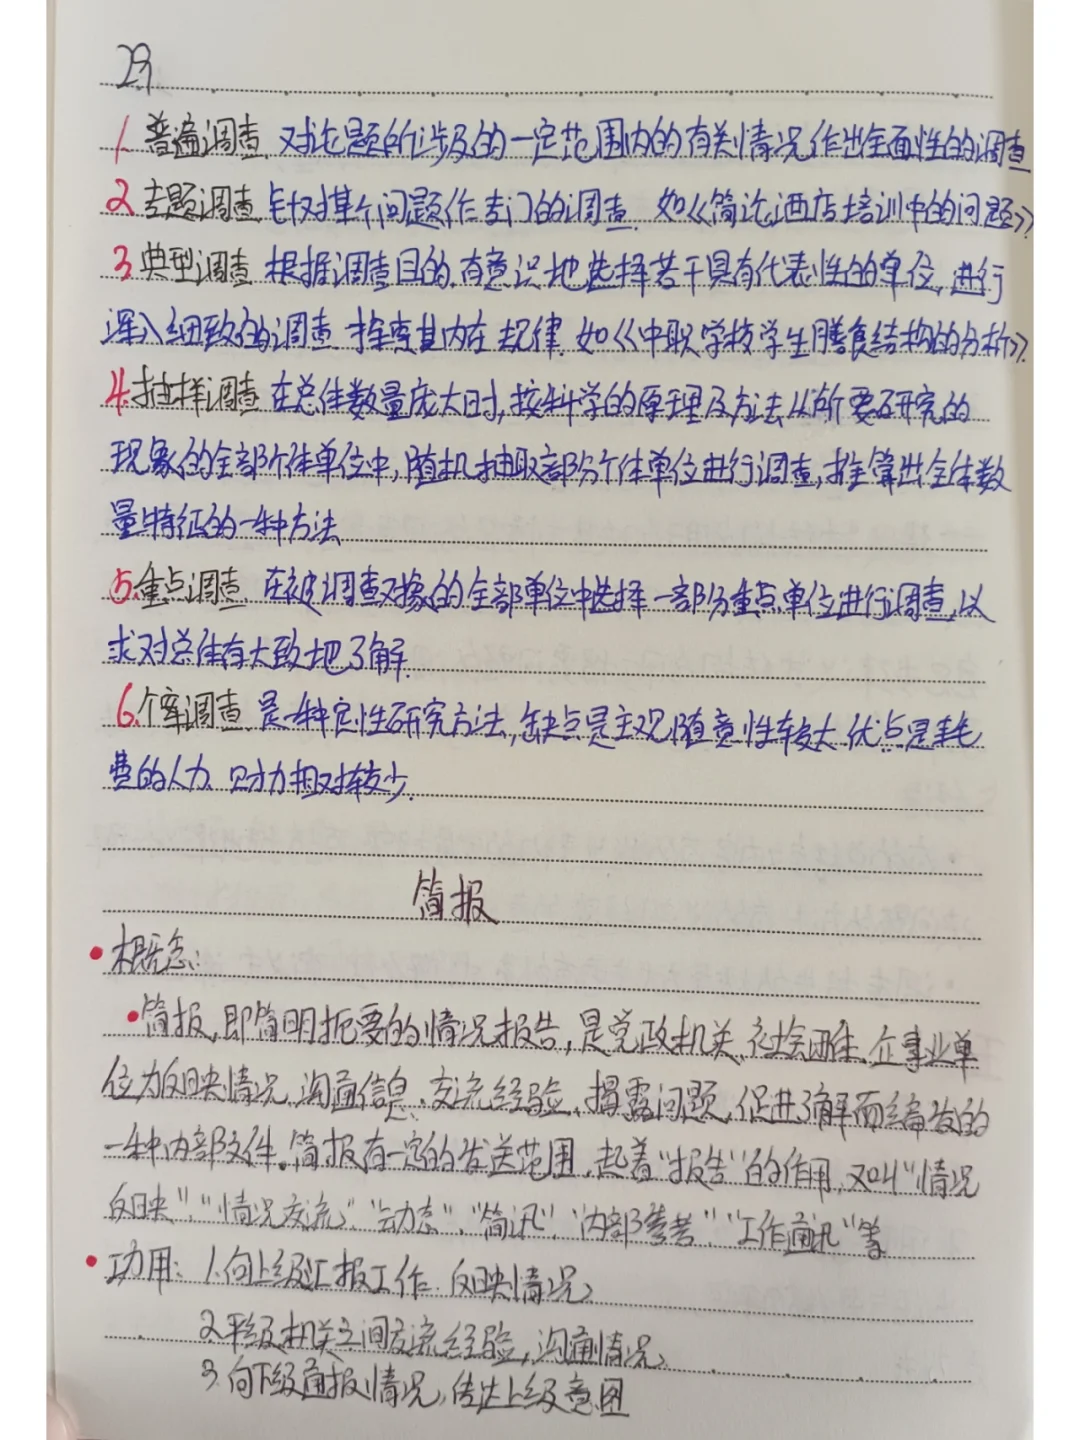 29
1. 普遍调查. 对论题所涉及的一定范围内的有关情况作出全面性的调查
2. 专题调查 针对某个问题作专门的调查. 如《简论酒店培训中的问题》.
3. 典型调查 根据调查目的.有意识地选择若干具有代表性的单位, 进行
深入细致的调查 探索其内在规律. 如《中职学校学生膳食结构的分析》.
4. 抽样调查 在总体数量庞大时, 按科学的原理及方法从所要研究的
现象的全部个体单位中, 随机抽取部分个体单位进行调查, 推算出全体数
量特征的一种方法
5. 重点调查. 在被调查对像的全部单位中选择一部分重点单位进行调查, 以
求对总体有大致地了解.
6. 个案调查. 是一种定性研究方法, 缺点是主观随意性较大. 优点是耗
费的人力、财力相对较少.
简报
• 概念:
• 简报, 即简明扼要的情况报告, 是党政机关、社会团体、企事业单
位为反映情况、沟通信息、交流经验、揭露问题, 促进了解而编发的
一种内部文件。简报有一定的发送范围, 起着“报告”的作用, 又叫“情况
反映”、“情况交流”、“动态”、“简讯”、“内部参考”、“工作通讯”等
• 功用: 1.向上级汇报工作、反映情况;
2.平级机关之间交流经验, 沟通情况;
3.向下级通报情况, 传达上级意图